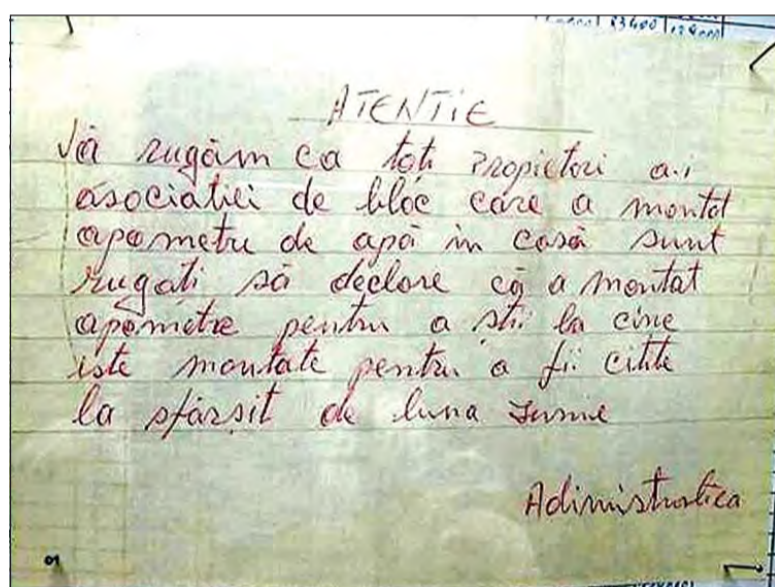 ATENTIE
Vă rugăm ca toti Propietori a.i
asociatiei de bloc care a montat
apometre de apă in casă sunt
rugati să declare că a montat
apometre pentru a stii la cine
iste montate pentru a fii citite
la sfârsit de luna Iunie
Adimistratica
01